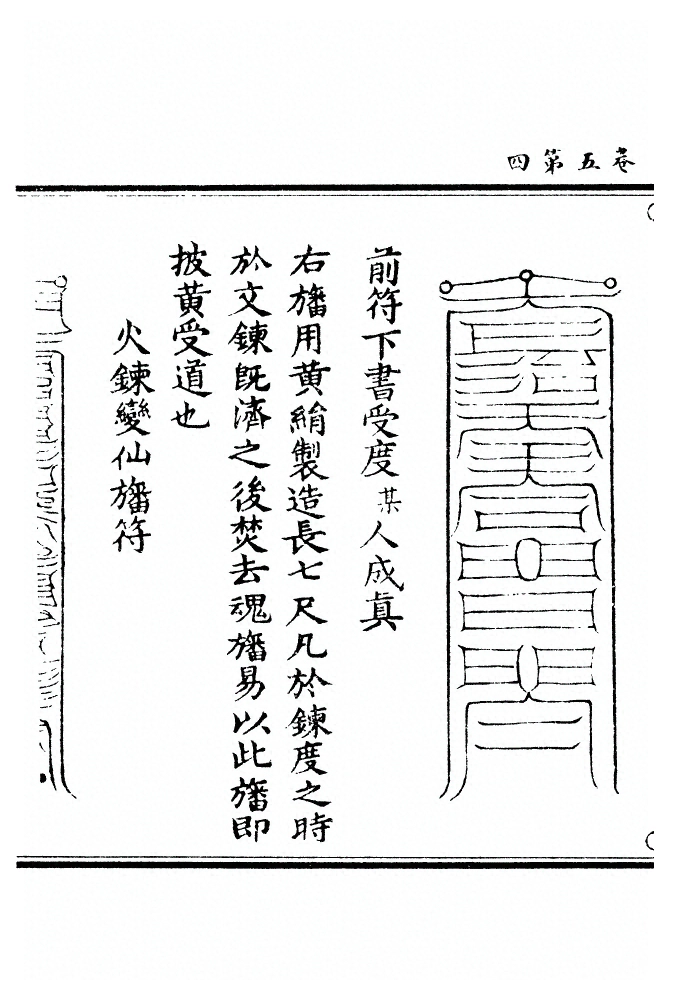 卷五第四
前符下書受度某人成真
右旛用黃絹製造長七尺凡於鍊度之時
於文鍊旣濟之後焚去魂旛易以此旛即
披黃受道也
火鍊變仙旛符